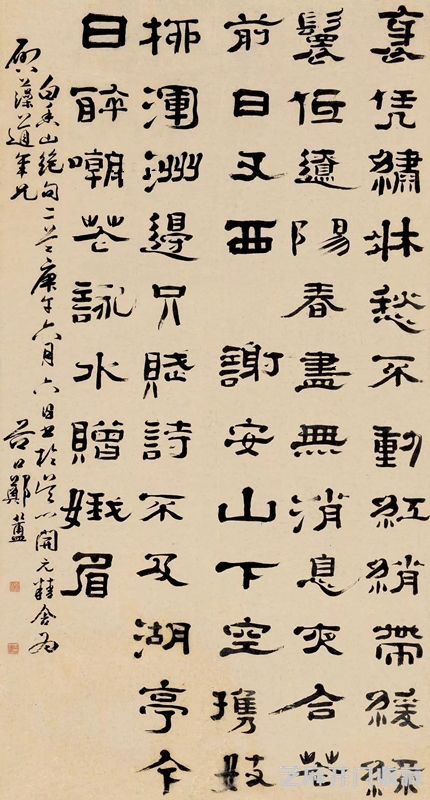 衺凭繡牀愁不動紅綃帶緩綠
鬟低遼陽春盡無消息夜合花
前日又西 謝安山下空攜妓
柳渾洲邊只賦詩不及湖亭今
日醉嘲花詠水贈娥眉
白香山絕句二首庚午六月六日書於吳門開元精舍為
藻道年兄 谷口鄭簠